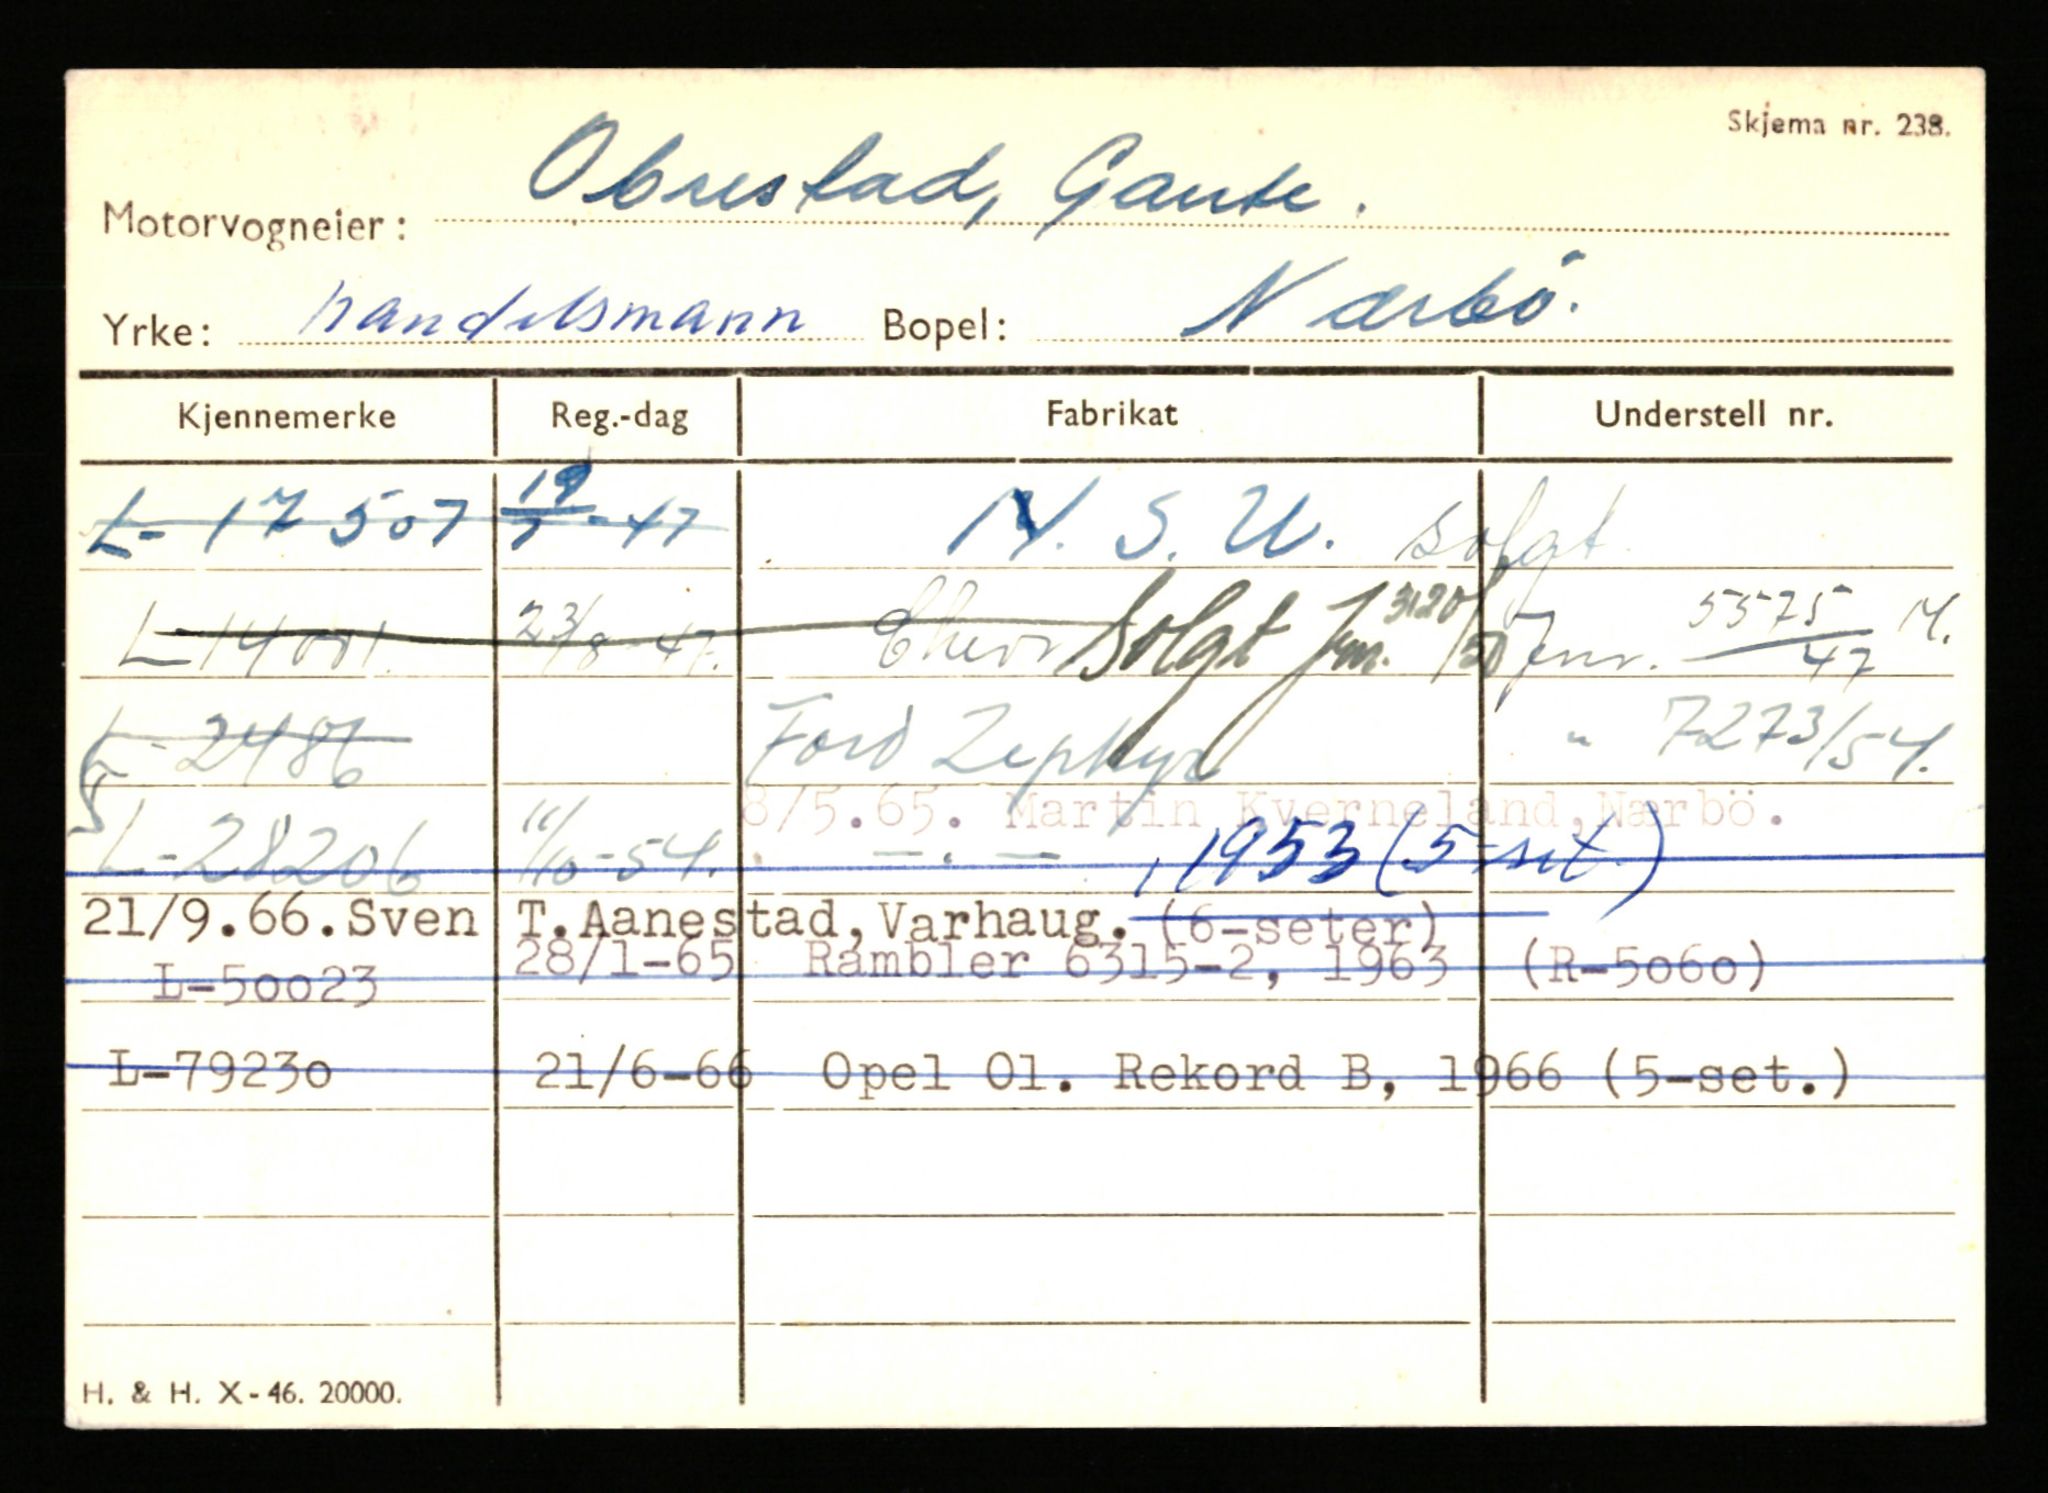 Skjema nr. 238.
Motorvogneier: Obrestad, Gaute.
Yrke: handelsmann Bopel: Nærbö.
Kjennemerke Reg.-dag Fabrikat Understell nr.
L-17507 19/7-47 N.S.U. solgt
L-14001. 23/8-47. Chevr Solgt Jnr. 3120/50 Jnr. 5575/47 M.
L-2486 Ford Zephyr " 7273/54.
8/5.65. Martin Kverneland, Nærbö.
L-28206 11/10-54. . —.— , 1953 (5-set.)
21/9.66. Sven T. Aanestad, Varhaug. (6-seter)
L-50023 28/1-65 Rambler 6315-2, 1963 (R-5060)
L-79230 21/6-66 Opel Ol. Rekord B, 1966 (5-set.)
H. & H. X-46. 20000.